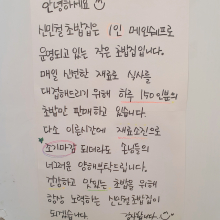 안녕하세요
신민철 초밥집은 1인 메인쉐프로
운영되고 있는 작은 초밥집입니다.
매일 신선한 재료로 식사를
대접해드리기 위해 하루 150인분의
초밥만 판매하고 있습니다.
다소 이른시간에 재료소진으로
조기마감 되더라도 손님들의
너그러운 양해부탁드립니다.
건강하고 맛있는 초밥을 위해
항상 노력하는 신민철초밥집이
되겠습니다. 감사합니다.